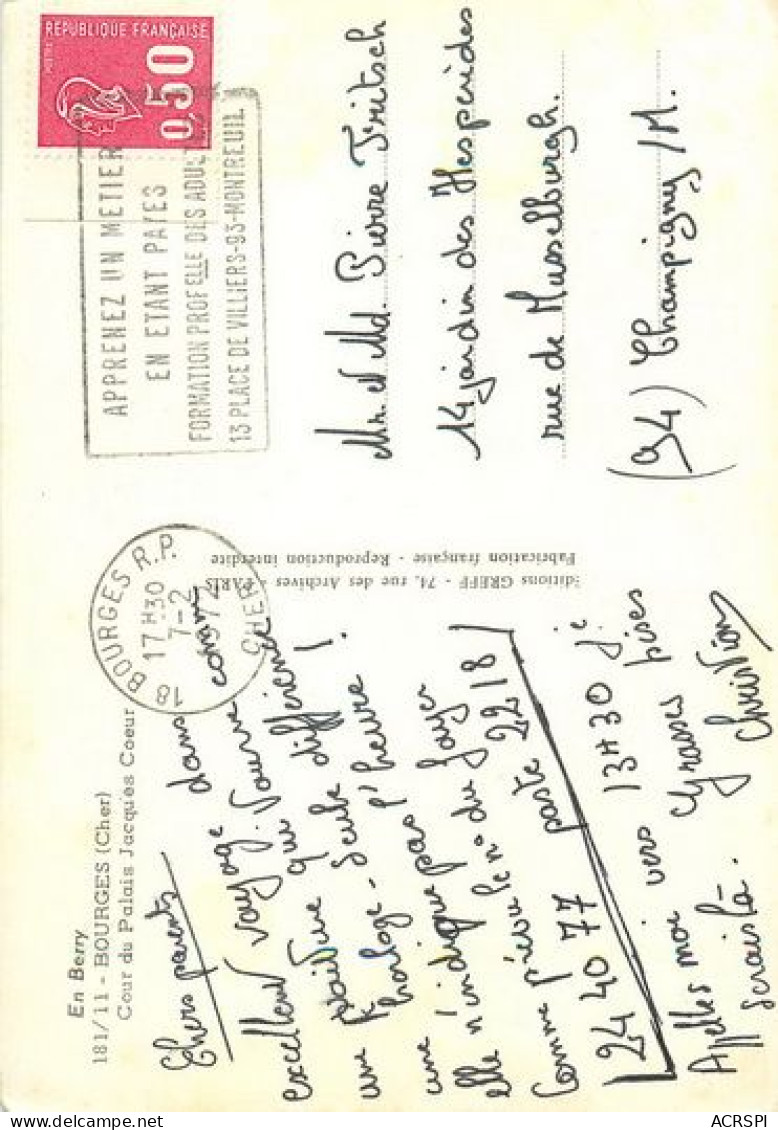 En Berry
181/11 - BOURGES (Cher)
Cour du Palais Jacques Coeur
Chers parents
excellent voyage dans
une voiture qui tourne comme
une horloge - Seule différence
elle n'indique pas l'heure !
Comme prévu le n° du foyer
24 40 77 poste 22 18
Appelles moi vers 13H30 je
serais là. Grasses bises
Christian
Editions GREFF - 74, rue des Archives - PARIS
Fabrication française - Reproduction interdite
18 BOURGES R.P.
17H30
7-2
1972
CHER
APPRENEZ UN METIER
EN ETANT PAYES
FORMATION PROFELLE DES ADULTES
13 PLACE DE VILLIERS-93-MONTREUIL
REPUBLIQUE FRANÇAISE
POSTES
0,50
Mr. et Md. Pierre Fritsch
14 jardin des Hespérides
rue de Musselburgh.
(94) Champigny /M.
ACRSPI